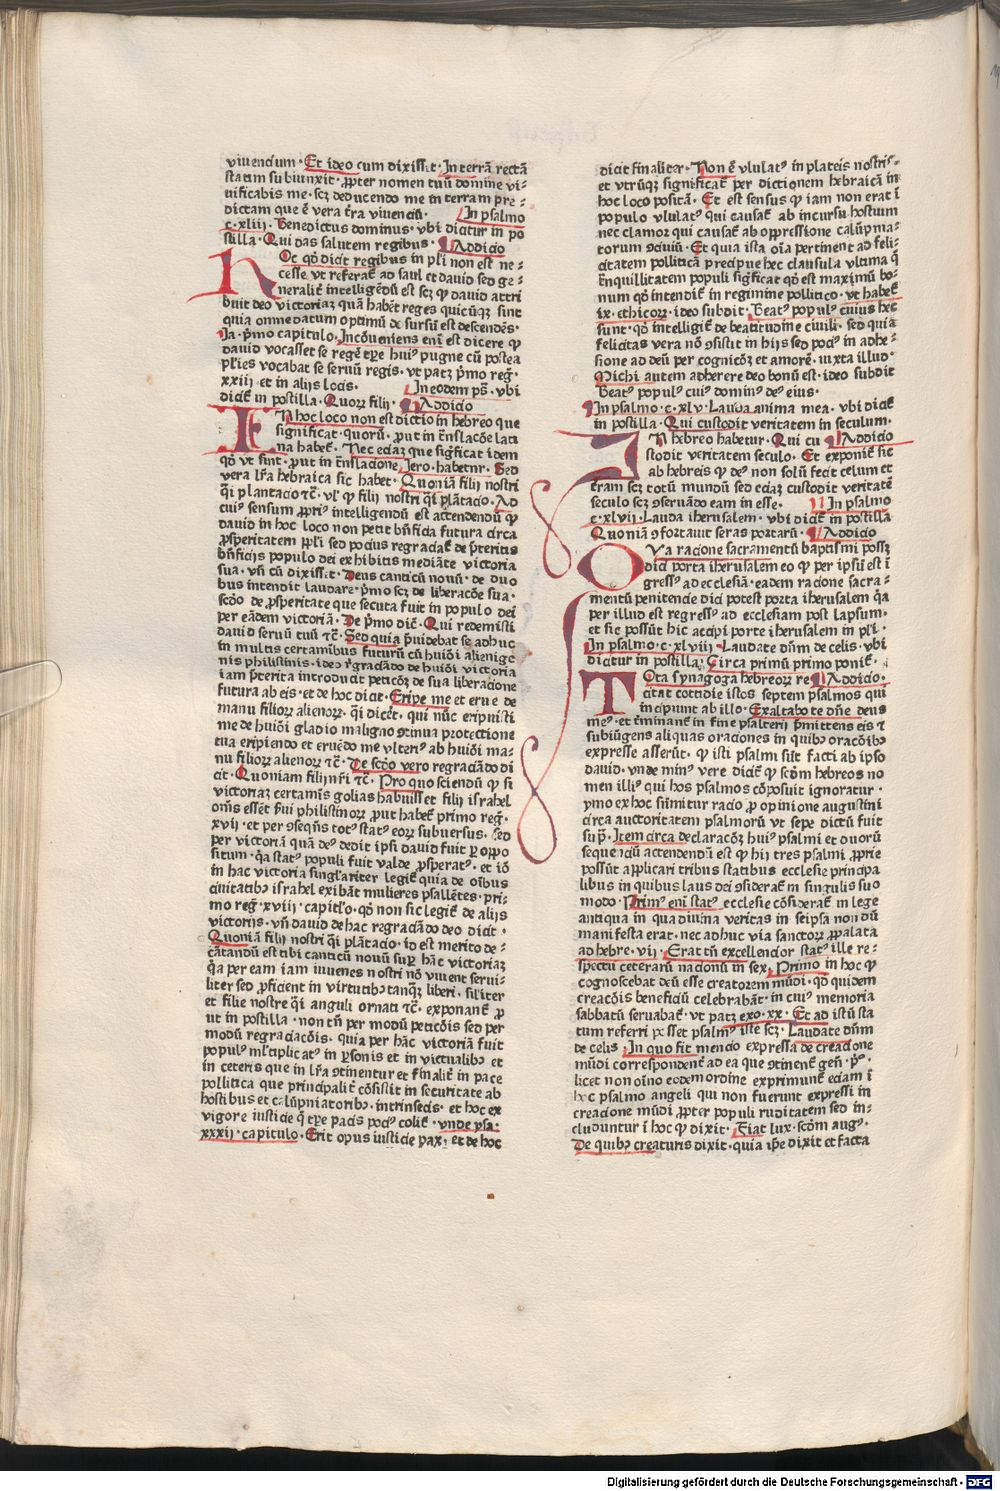 viuencium · Et ideo cum dixisset · In terrā rectā
statim subiunxit · ꝓpter nomen tuū domine vi⸗
uificabis me · scꝫ deducendo me in terram pre⸗
dictam que ē vera t̄ra viuenciū · In psalmo
c · xliii · Benedictus dominus · vbi dicitur in po
stilla · Qui das salutem regibus · Addicio
Oc qd̄ dicit regibus in ps̄i non est ne⸗
cesse vt referat̄ ad saul et dauid sed ge⸗
neralit̄ intelligēdū est scꝫ ꝙ dauid attri
buit deo victoriaꝫ quā habēt reges quicūqꝫ sint
quia omne datum optimū de sursū est descendēs ·
Ja · p̄mo capitulo · Incōueniens eni est dicere ꝙ
dauid vocasset se regē tꝑe huiꝰ pugne cū postea
pl̄ies vocabat se seruū regis · vt patꝫ p̄mo reḡ ·
xxiii et in alijs locis · In eodem ps̄ · vbi
dicit̄ in postilla · Quoꝝ filij · Addicio
IN hoc loco non est dictio in hebreo que
significat · quorū · put in t̄nslacōe lati
na habet̄ · Nec eciaꝫ que sigficat idem
qd̄ vt sint · put in t̄nslacione Jero · habetur · Sed
vera l̄ra hebraica sic habet · Quoniā filij nostri
q̄i plantacio ⁊c̄ · vl̄ ꝙ filij nostri q̄i plātacio · Ad
cuiꝰ sensum ꝓpriꝰ intelligendū est attendendū ꝙ
dauid in hoc loco non petit bn̄ficia futura circa
ꝓsperitatem ppl̄i sed pocius regraciat̄ de p̄teritus
bn̄ficijs populo dei exhibitis mediāte victoria
sua · vn̄ cū dixisset · Deus canticū nouū · de duo
bus intendit laudare · p̄mo scꝫ de liberacōe sua ·
scd̄o de ꝓsperitate que secuta fuit in populo dei
per eādem victoriā · De p̄mo dic̄ · Qui redemisti
dauid seruū tuū ⁊c̄ · Sed quia p̄uidebat se adhuc
in multis certamibus futurū cū huiōi alienige
nis philistinis · ideo r̄graciādo de huiōi victoria
iam p̄terita introducit peticōꝫ de sua liberacione
futura ab eis · et de hoc dicit · Eripe me et erue de
manu filioꝝ alienoꝝ · q̄i dicēt · qui nūc eripuisti
me de huiōi gladio maligno ꝯtinua protectione
tua eripiendo et eruēdo me vlteriꝰ ab huiōi ma⸗
nu filioꝝ alienoꝝ ⁊c̄ · De scd̄o vero regraciādo di
cit · Quoniam filij nr̄i ⁊c̄ · Pro quo sciendū ꝙ si
victoriaꝫ certamīs golias habuisset filij israhel
om̄s essēt p̄ui philistinoꝝ put habet̄ primo reḡ ·
xvij · et per ꝯseqn̄s totꝰ statꝰ eoꝝ subuersus · sed
per victoriā quā deꝰ dedit ipsi dauid fuit ꝑ oppo
situm · q̄a statꝰ populi fuit valde ꝓsperatꝰ · et iō
in hac victoria singl̄ariter legit̄ quia de oībus
ciuitatibꝰ israhel exibāt mulieres psallētes · pri⸗
mo reḡ · xviij · capitl̄o · qd̄ non sic legit̄ de alijs
victorijs · vn̄ dauid de hac regraciādo deo dicit ·
Quoniā filij nostri q̄i plātacio · id est merito de⸗
cātandū est tibi canticū nouū suꝑ hāc victoriaꝫ
q̄a per eam iam iuuenes nostri nō viuent serui⸗
liter sed ꝓficient in virtutibꝰ tanqꝫ liberi · sil̄iter
et filie nostre q̄i anguli ornati ⁊c̄ · exponant̄ ꝓ
ut in postilla · non tn̄ per modū peticōis sed per
modū regraciacōis · quia per hāc victoriā fuit
populꝰ ml̄tiplicatꝰ in ꝑsonis et in victualibꝰ et
in ceteris que in l̄ra ꝯtinentur et finalit̄ in pace
pollitica que principalit̄ cōsistit in securitate ab
hostibus et calūpniatoribꝰ · intrinsecis · et hoc ex
vigore iusticie q̄ tꝑe pacis pociꝰ colit̄ · vnde ysa ·
xxxij · capitulo · Erit opus iusticie pax · et de hoc
dicit finaliter · Non ē vlulatꝰ in plateis nostris ·
et vtrūqꝫ significat̄ per dictionem hebraicā in
hoc loco positā · Et est sensus ꝙ iam non erat ī
populo vlulatꝰ qui causat̄ ab incursu hostium
nec clamor qui causat̄ ab oppressione calūpnia⸗
torum ꝯciuiū · Et quia ista oīa pertinent ad feli⸗
citatem polliticā precipue hec clausula vltima q̄
t̄nquillitatem populi sigficat qd̄ est maximū bo⸗
num qd̄ intendit̄ in regimine pollitico · vt habet̄
ix · ethicoꝝ · ideo subdit · Beatꝰ populꝰ cuius hec
sunt · qd̄ intelligit̄ de beatitudine ciuili · sed quia
felicitas vera nō ꝯsistit in hijs sed pociꝰ in adhe⸗
sione ad deū per cognicōꝫ et amorē · iuxta illud ·
Michi autem adherere deo bonū est · ideo subdit
Beatꝰ populꝰ cuiꝰ dominꝰ deꝰ eius ·
In psalmo · c · xlv · Lauda anima mea · vbi dicit̄
in postilla · Qui custodit veritatem in seculum ·
In hebreo habetur · Qui cu Addicio
stodit veritatem seculo · Et exponit̄ sic
ab hebreis ꝙ deꝰ non solū fecit celum et
t̄ram scꝫ totū mundū sed eciaꝫ custodit veritatē
seculo scꝫ ꝯseruādo eam in esse · In psalmo
c · xlvii · Lauda iherusalem · vbi dicit̄ in postilla
Quoniā ꝯfortauit seras portarū · Addicio
Va racione sacramentū baptismi possꝫ
dici porta iherusalem eo ꝙ per ipsū est ī
gressꝰ ad ecclesiā · eadem racione sacra⸗
mentū penitencie dici potest porta iherusalem q̄a
per illud est regressꝰ ad ecclesiam post lapsum ·
et sic possūt hic accipi porte iherusalem in ps̄i ·
In psalmo · c · xlviii · Laudate dūm de celis · vbi
dicitur in postilla · Circa primū primo ponit̄ ·
Tota synagoga hebreoꝝ re Addicio ·
citat cottidie istos septem psalmos qui
incipiunt ab illo · Exaltabo te dn̄e deus
meꝰ · et t̄minant̄ in fine psalterij p̄mittens eis ⁊
subiūgens aliquas oraciones in quibꝰ oracōibꝰ
expresse asserūt · ꝙ isti psalmi sūt facti ab ipso
dauid · vnde minꝰ vere dicit̄ ꝙ scd̄m hebreos no
men illiꝰ qui hos psalmos cōposuit ignoratur ·
ymo ex hoc sūmitur racio ꝓ opinione augustini
circa auctoritatem psalmorū vt sepe dictū fuit
sup̄ · Item circa declaracōꝫ huiꝰ psalmi et duorū
sequenciū actendendū est ꝙ hij tres psalmi ꝓprie
possūt applicari tribus statibus ecclesie principa
libus in quibus laus dei ꝯsiderat̄ in singulis suo
modo · Primꝰ eni statꝰ ecclesie cōsiderat̄ in lege
antiqua in qua diuina veritas in seipsa non dū
manifesta erat · nec adhuc via sanctoꝝ ꝓpalata
ad hebre · vij · Erat tn̄ excellencior statꝰ ille re⸗
spectu ceterarū nacionū in sex · Primo in hoc ꝙ
cognoscebat deū esse creatorem mūdi · qd̄ quidem
creacōis beneficiū celebrabāt · in cuiꝰ memoria
sabbatū seruabat̄ · vt patꝫ exo · xx · Et ad istū sta
tum referri posset psalmꝰ iste scꝫ · Laudate dūm
de celis · In quo fit mencio expressa de creacione
mūdi correspondent̄ ad ea que ꝯtinent̄ gen̄ · p̄ ·
licet non oīno eodem ordine exprimunt̄ eciam ī
hoc psalmo angeli qui non fuerunt expressi in
creacione mūdi ꝓpter populi ruditatem sed in⸗
cluduntur ī hoc ꝙ dixit · Fiat lux · scd̄m augꝰ ·
De quibꝰ creaturis dixit · quia ip̄e dixit et facta
Digitalisierung gefördert durch die Deutsche Forschungsgemeinschaft · DFG